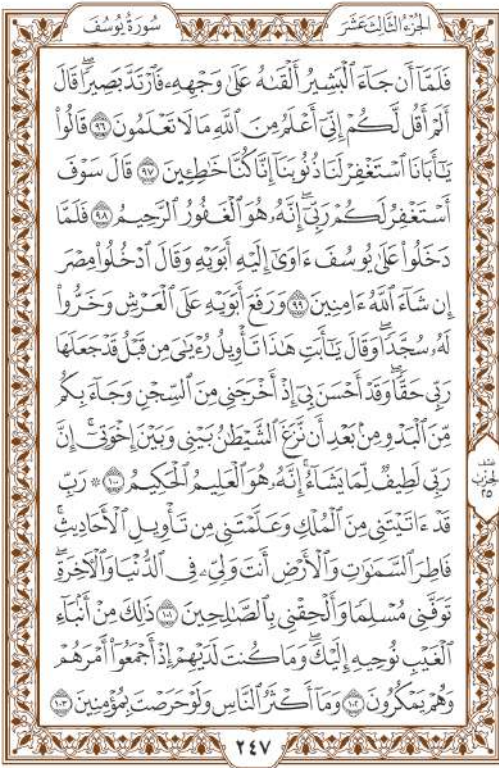 سُورَةُ يُوسُفَ
الجُزْءُ الثَّالِثَ عَشَرَ
فَلَمَّآ أَن جَآءَ ٱلْبَشِيرُ أَلْقَىٰهُ عَلَىٰ وَجْهِهِۦ فَٱرْتَدَّ بَصِيرًاۖ قَالَ
أَلَمْ أَقُل لَّكُمْ إِنِّىٓ أَعْلَمُ مِنَ ٱللَّهِ مَا لَا تَعْلَمُونَ ٩٦ قَالُوا۟
يَـٰٓأَبَانَا ٱسْتَغْفِرْ لَنَا ذُنُوبَنَآ إِنَّا كُنَّا خَـٰطِـِٔينَ ٩٧ قَالَ سَوْفَ
أَسْتَغْفِرُ لَكُمْ رَبِّىٓۖ إِنَّهُۥ هُوَ ٱلْغَفُورُ ٱلرَّحِيمُ ٩٨ فَلَمَّا
دَخَلُوا۟ عَلَىٰ يُوسُفَ ءَاوَىٰٓ إِلَيْهِ أَبَوَيْهِ وَقَالَ ٱدْخُلُوا۟ مِصْرَ
إِن شَآءَ ٱللَّهُ ءَامِنِينَ ٩٩ وَرَفَعَ أَبَوَيْهِ عَلَى ٱلْعَرْشِ وَخَرُّوا۟
لَهُۥ سُجَّدًاۖ وَقَالَ يَـٰٓأَبَتِ هَـٰذَا تَأْوِيلُ رُءْيَـٰىَ مِن قَبْلُ قَدْ جَعَلَهَا
رَبِّى حَقًّاۖ وَقَدْ أَحْسَنَ بِىٓ إِذْ أَخْرَجَنِى مِنَ ٱلسِّجْنِ وَجَآءَ بِكُم
مِّنَ ٱلْبَدْوِ مِنۢ بَعْدِ أَن نَّزَغَ ٱلشَّيْطَـٰنُ بَيْنِى وَبَيْنَ إِخْوَتِىٓۚ إِنَّ
رَبِّى لَطِيفٌ لِّمَا يَشَآءُۚ إِنَّهُۥ هُوَ ٱلْعَلِيمُ ٱلْحَكِيمُ ١٠٠ ۞ رَبِّ
قَدْ ءَاتَيْتَنِى مِنَ ٱلْمُلْكِ وَعَلَّمْتَنِى مِن تَأْوِيلِ ٱلْأَحَادِيثِۚ
فَاطِرَ ٱلسَّمَـٰوَٰتِ وَٱلْأَرْضِ أَنتَ وَلِىِّۦ فِى ٱلدُّنْيَا وَٱلْـَٔاخِرَةِۖ
تَوَفَّنِى مُسْلِمًا وَأَلْحِقْنِى بِٱلصَّـٰلِحِينَ ١٠١ ذَٰلِكَ مِنْ أَنۢبَآءِ
ٱلْغَيْبِ نُوحِيهِ إِلَيْكَۖ وَمَا كُنتَ لَدَيْهِمْ إِذْ أَجْمَعُوٓا۟ أَمْرَهُمْ
وَهُمْ يَمْكُرُونَ ١٠٢ وَمَآ أَكْثَرُ ٱلنَّاسِ وَلَوْ حَرَصْتَ بِمُؤْمِنِينَ ١٠٣
نصف
الحزب
٢٥
٢٤٧